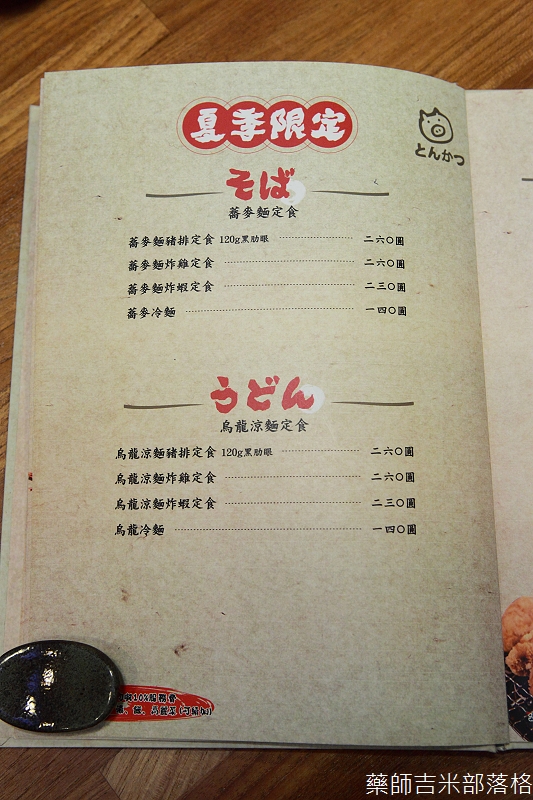 夏季限定
とんかつ
そば
蕎麥麵定食
蕎麥麵豬排定食 120g黑肋眼 二六〇圓
蕎麥麵炸雞定食 二六〇圓
蕎麥麵炸蝦定食 二三〇圓
蕎麥冷麵 一四〇圓
うどん
烏龍涼麵定食
烏龍涼麵豬排定食 120g黑肋眼 二六〇圓
烏龍涼麵炸雞定食 二六〇圓
烏龍涼麵炸蝦定食 二三〇圓
烏龍冷麵 一四〇圓
10%服務費
藥師吉米部落格